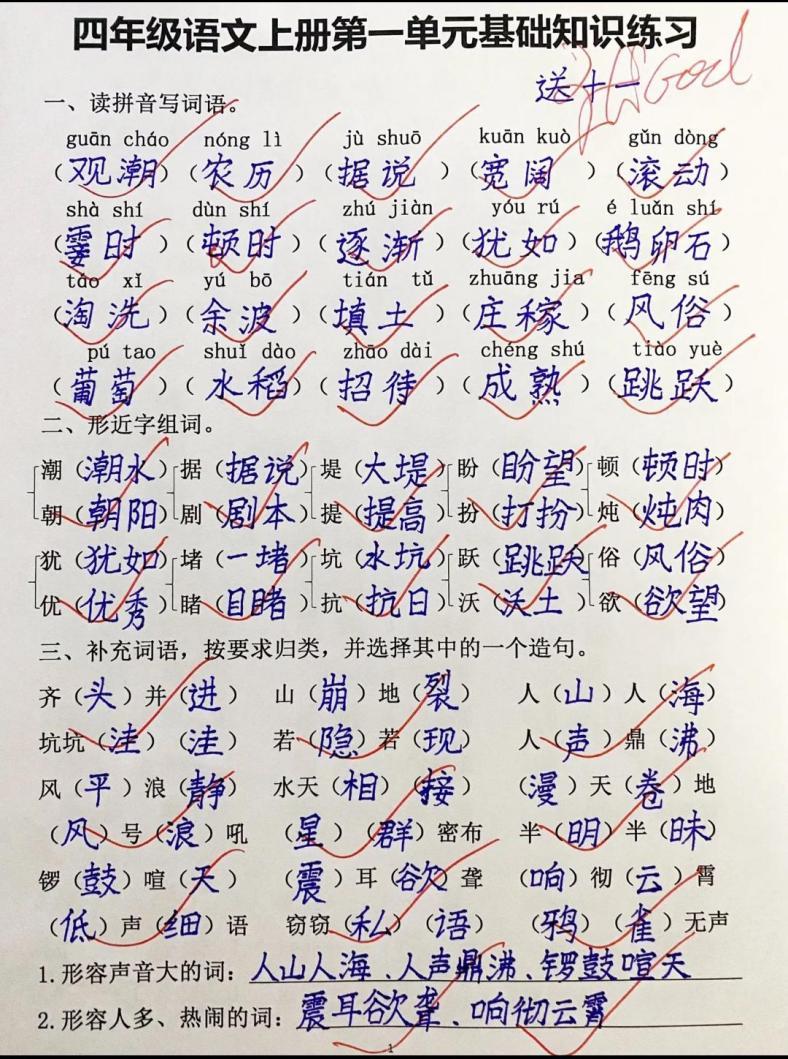 四年级语文上册第一单元基础知识练习
送十一 God
一、读拼音写词语。
guān cháo nóng lì jù shuō kuān kuò gǔn dòng
（观潮）（农历）（据说）（宽阔）（滚动）
shà shí dùn shí zhú jiàn yóu rú é luǎn shí
（霎时）（顿时）（逐渐）（犹如）（鹅卵石）
táo xǐ yú bō tián tǔ zhuāng jia fēng sú
（淘洗）（余波）（填土）（庄稼）（风俗）
pú tao shuǐ dào zhāo dài chéng shú tiào yuè
（葡萄）（水稻）（招待）（成熟）（跳跃）
二、形近字组词。
潮（潮水） 据（据说） 堤（大堤） 盼（盼望） 顿（顿时）
朝（朝阳） 剧（剧本） 提（提高） 扮（打扮） 炖（炖肉）
犹（犹如） 堵（一堵） 坑（水坑） 跃（跳跃） 俗（风俗）
优（优秀） 睹（目睹） 抗（抗日） 沃（沃土） 欲（欲望）
三、补充词语，按要求归类，并选择其中的一个造句。
齐（头）并（进） 山（崩）地（裂） 人（山）人（海）
坑坑（洼）（洼） 若（隐）若（现） 人（声）鼎（沸）
风（平）浪（静） 水天（相）（接） （漫）天（卷）地
（风）号（浪）吼 （星）（群）密布 半（明）半（昧）
锣（鼓）喧（天） （震）耳（欲）聋 （响）彻（云）霄
（低）声（细）语 窃窃（私）（语） （鸦）（雀）无声
1.形容声音大的词：人山人海、人声鼎沸、锣鼓喧天
2.形容人多、热闹的词：震耳欲聋、响彻云霄
1